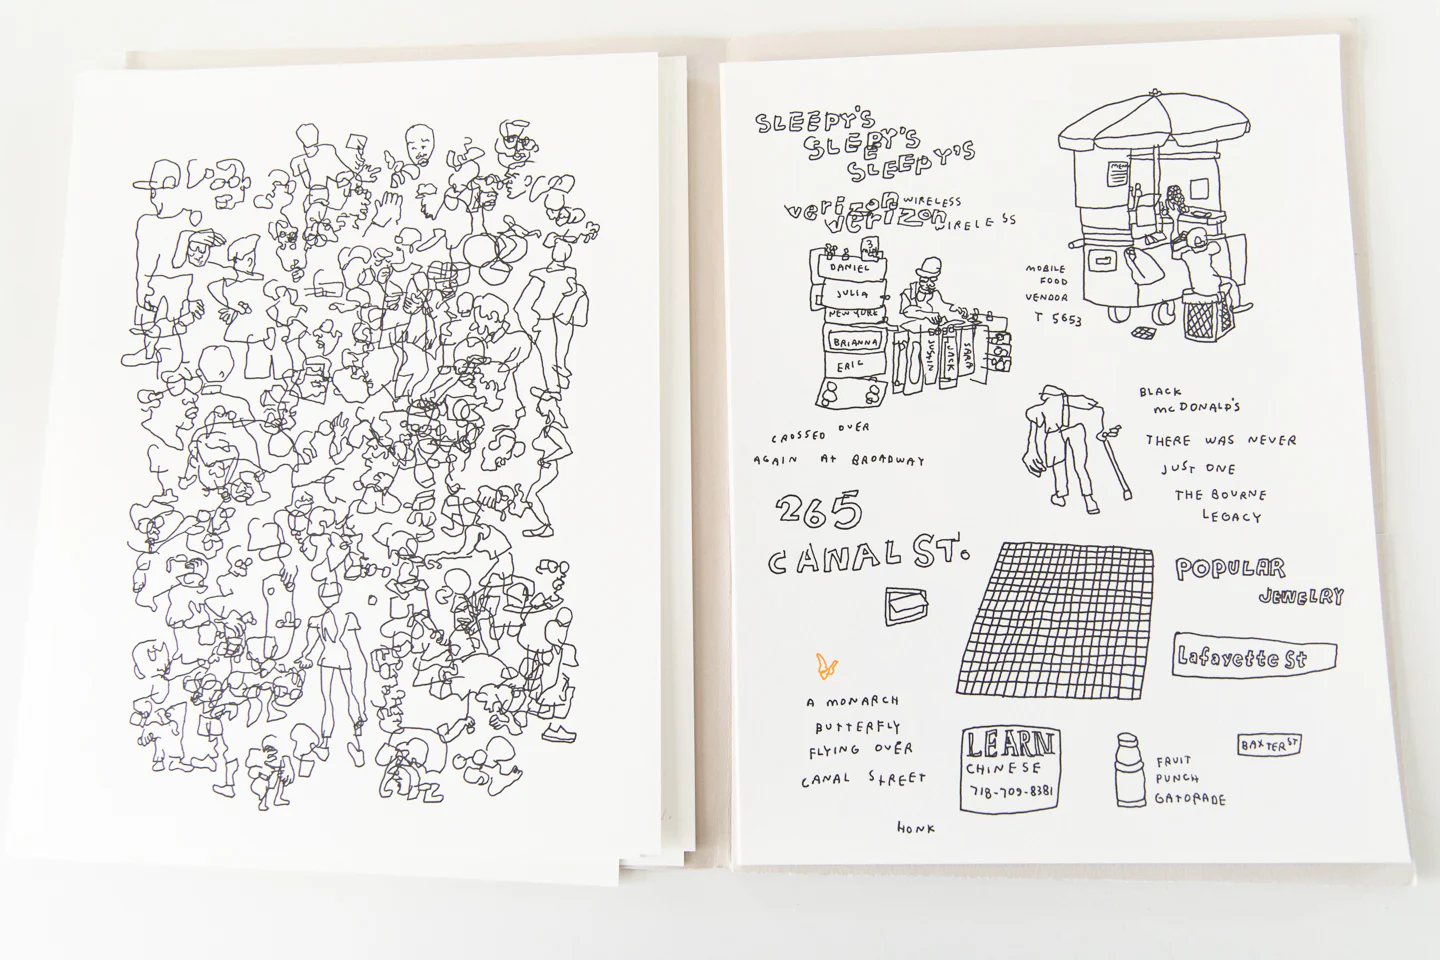 SLEEPY'S
SLEPY'S
E
SLEEPY'S
verizon WIRELESS
verizon WIRELESS
3
MENU
DANIEL
JULIA
NEW YORK
BRIANNA
ERIC
SUSAN
JACK
SARA
MOBILE
FOOD
VENDOR
T 5653
CROSSED OVER
AGAIN AT BROADWAY
BLACK
McDONALD'S
THERE WAS NEVER
JUST ONE
THE BOURNE
LEGACY
265
CANAL ST.
POPULAR
JEWELRY
Lafayette St
A MONARCH
BUTTERFLY
FLYING OVER
CANAL STREET
LEARN
CHINESE
718-709-8381
FRUIT
PUNCH
GATORADE
BAXTER ST
HONK